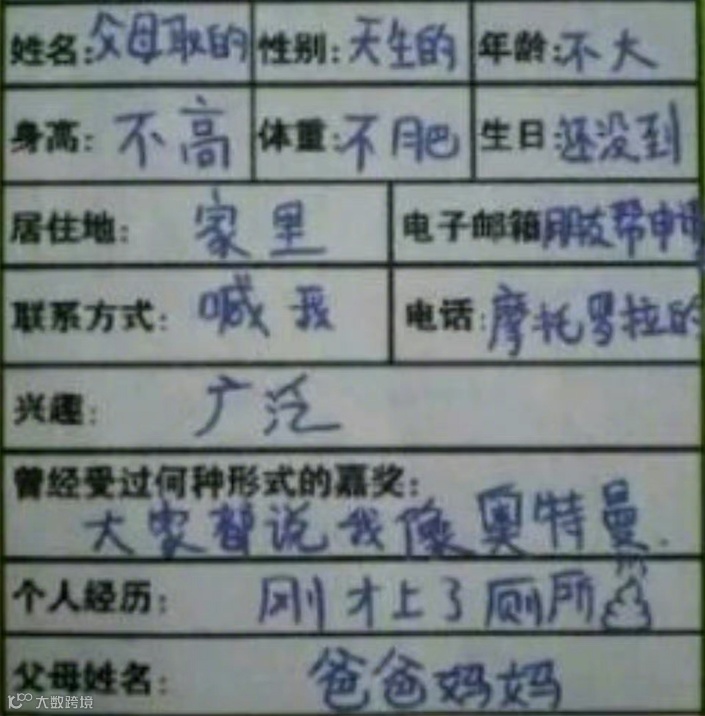 姓名:父母取的 性别:天生的 年龄:不大
身高:不高 体重:不肥 生日:还没到
居住地:家里 电子邮箱朋友帮申请
联系方式:喊我 电话:摩托罗拉的
兴趣:广泛
曾经受过何种形式的嘉奖:
大家都说我像奥特曼.
个人经历:刚才上了厕所
父母姓名:爸爸妈妈
大数跨境